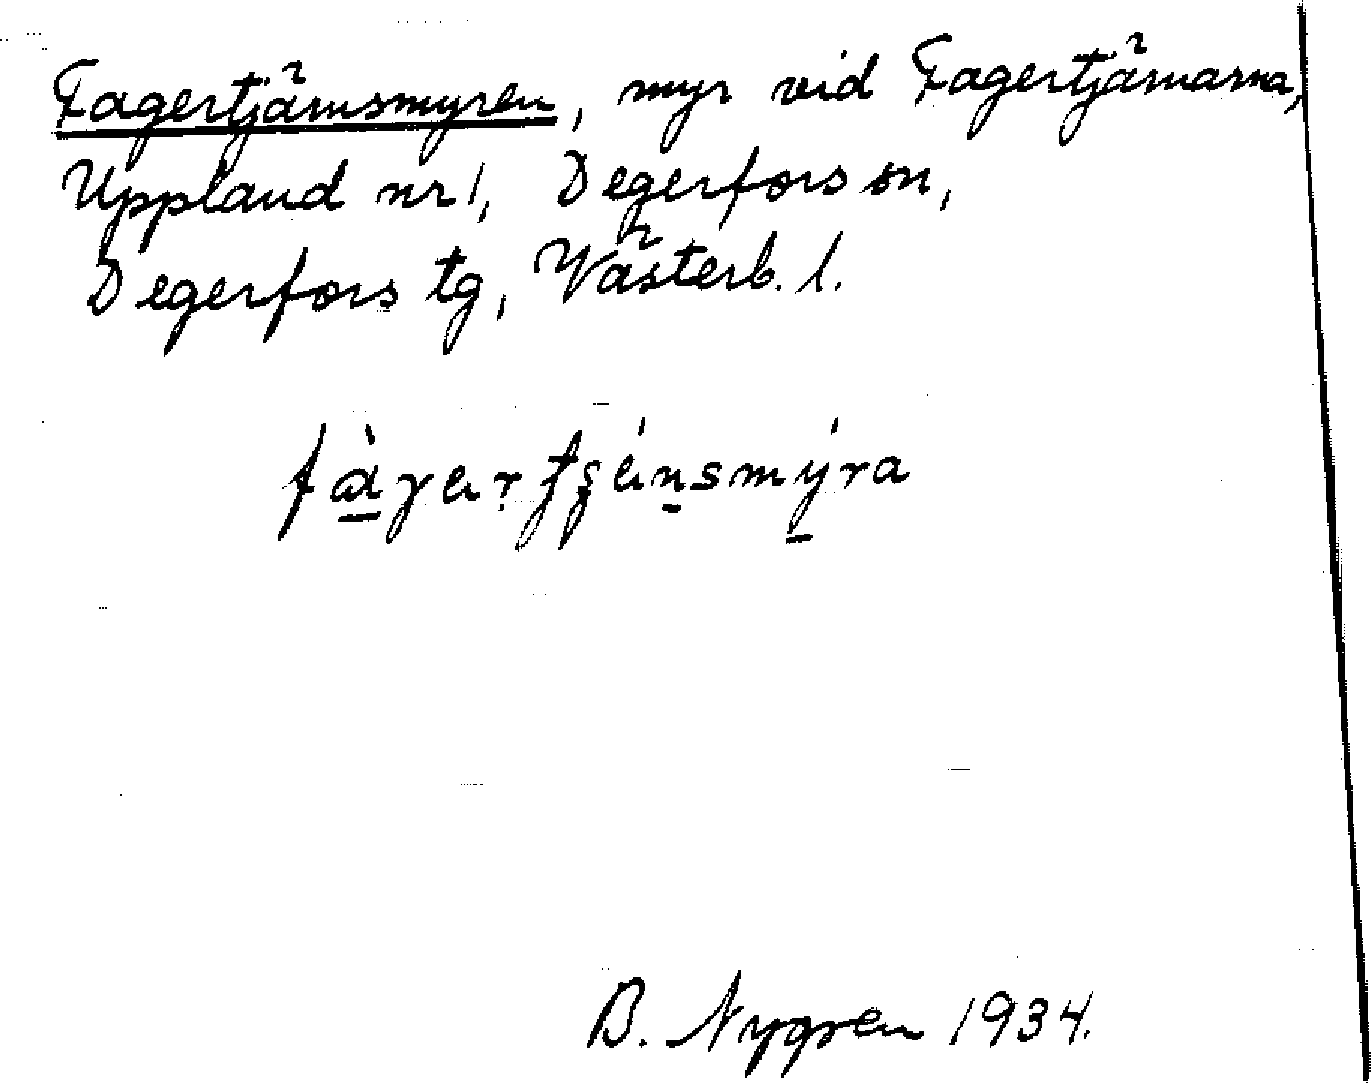 Fagertjärnsmyren, myr vid Fagertjärnarna,
Uppland nr 1, Degerfors sn,
Degerfors tg, Västerb. l.
B. Nygren 1934.